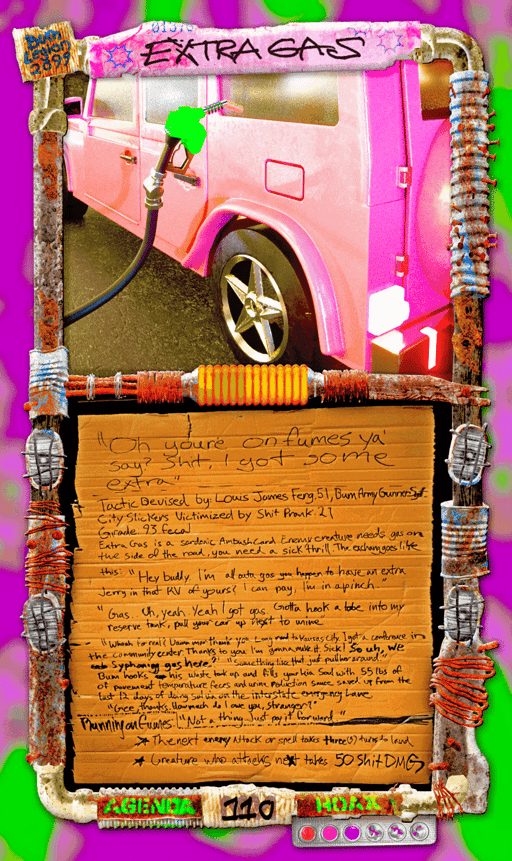 01370
Bum
Legion
2099
EXTRA GAS
"Oh youre on fumes ya'
say? Shit, I got some
extra"
Tactic Devised by: Louis James Feng, 51, Bum Army Gunner
City Slickers Victimized by Shit Prank: 21
Grade 93 fecal
Extra Gas is a sardonic Ambush Card. Enemy creature needs gas on
the side of the road, you need a sick thrill. The exchange goes like
this: "Hey buddy, I'm all outa gas you happen to have an extra
Jerry in that RV of yours? I can pay, I'm in a pinch."
"Gas.. Uh, yeah. Yeah I got gas. Gotta hook a tube into my
reserve tank, pull your car up right to mine"
"Whoah for real? Damn man thank you. Long road to Kansas City, I got a conference in
the community center. Thanks to you I'm gonna make it. Sick! So uh, we
syphoning gas here?" "Something like that just pull her around"
Bum hooks his waste tank up and fills your Kia Soul with 55 lbs of
of pavement temperature feces and urine reduction sauce saved up from the
last 12 days of doing on the interstate emergency lane.
"Gee thanks. How much do I owe you, stranger?"
Running on Fumes "Not a thing. Just pay it forward"
★ The next enemy attack or spell takes three(3) turns to land
★ Creature who attacks next takes 50 Shit DMG
AGENDA 110 HOAX